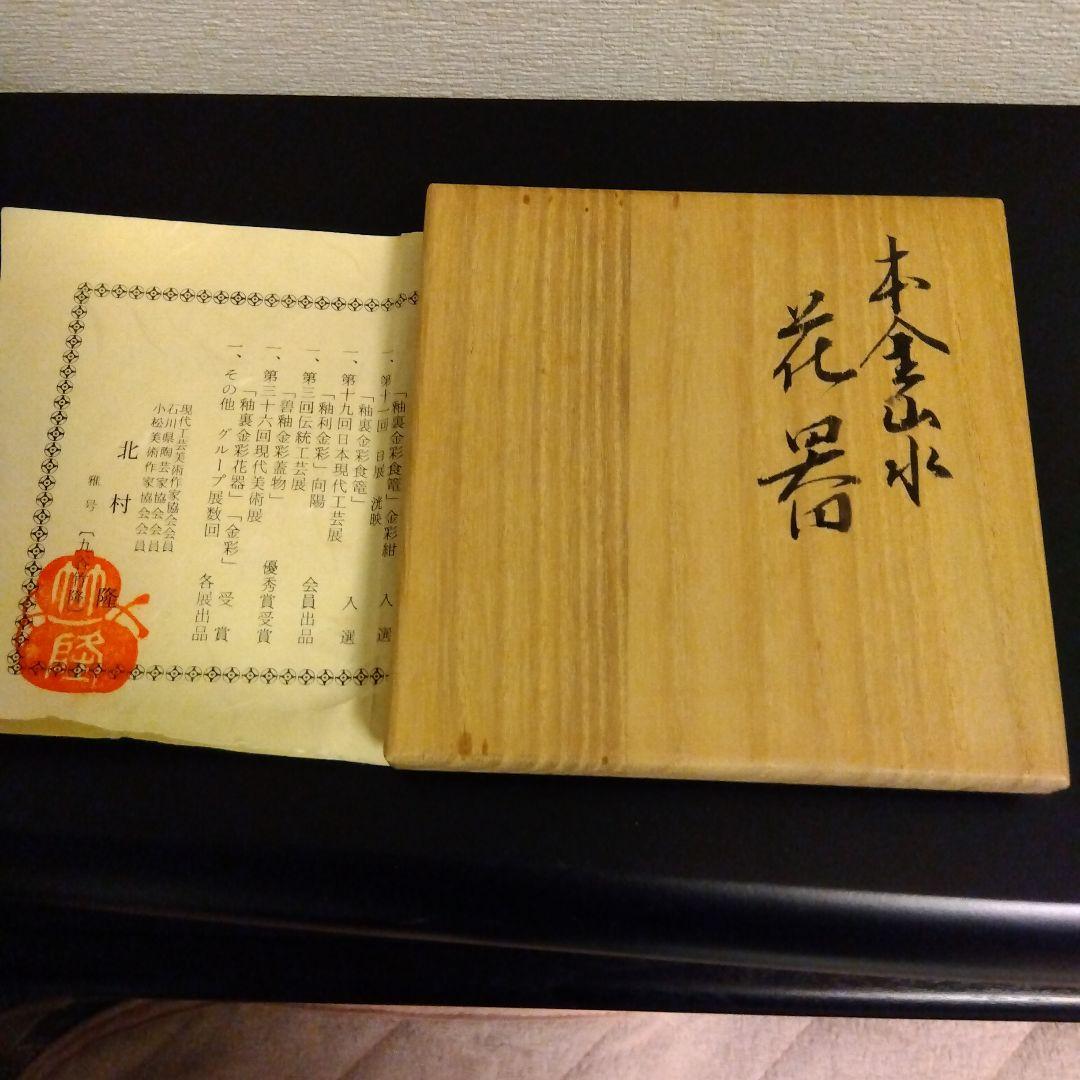 本金山水
花器
「釉裏金彩食篭」金彩紺
一、第十一回 日展 洸映 入選
「釉裏金彩食篭」
一、第十九回日本現代工芸展 入選
「釉利金彩」向陽
一、第三回伝統工芸展 会員出品
「碧釉金彩蓋物」
一、第三十六回現代美術展 優秀賞受賞
「釉裏金彩花器」「金彩」 受賞
一、その他 グループ展数回 各展出品
現代工芸美術作家協会会員
石川県陶芸家協会会員
小松美術作家協会会員
北村 隆
雅号